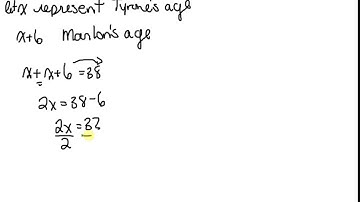 let x represent Tyrone's age
x+6 Marlon's age
x+x+6=38
2x=38-6
2x=32
2